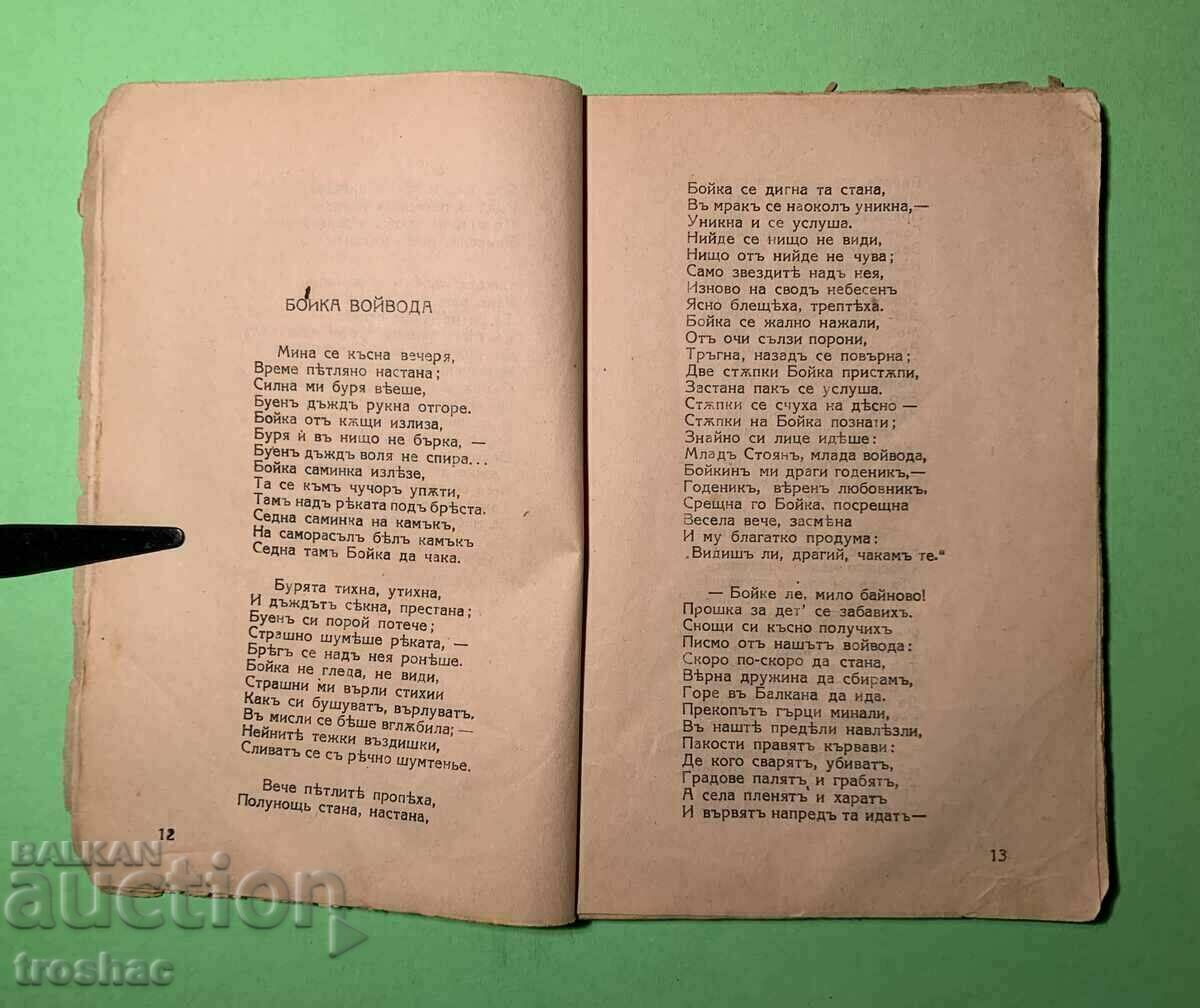 БОЙКА ВОЙВОДА
Мина се късна вечеря,
Време пѣтляно настана;
Силна ми буря вѣеше,
Буенъ дъждъ рукна отгоре.
Бойка отъ кѫщи излиза,
Буря ѝ въ нищо не бърка, —
Буенъ дъждъ воля не спира...
Бойка саминка излѣзе,
Та се къмъ чучоръ упѫти,
Тамъ надъ рѣката подъ брѣста.
Седна саминка на камъкъ,
На саморасълъ бѣлъ камъкъ
Седна тамъ Бойка да чака.
Бурята тихна, утихна,
И дъждътъ сѣкна, престана;
Буенъ си порой потече;
Страшно шумѣше рѣката, —
Брѣгъ се надъ нея ронѣше.
Бойка не гледа, не види,
Страшни ми върли стихии
Какъ си бушуватъ, върлуватъ.
Въ мисли се бѣше вглѫбила; —
Нейнитѣ тежки въздишки,
Сливатъ се съ рѣчно шумтенье.
Вече пѣтлитѣ пропѣха,
Полунощь стана, настана,
12
Бойка се дигна та стана,
Въ мракъ се наоколъ уникна,—
Уникна и се услуша.
Нийде се нищо не види,
Нищо отъ нийде не чува;
Само звездитѣ надъ нея,
Изново на сводъ небесенъ
Ясно блещѣха, трептѣха.
Бойка се жално нажали,
Отъ очи сълзи порони,
Тръгна, назадъ се повърна;
Две стѫпки Бойка пристѫпи,
Застана пакъ се услуша.
Стѫпки се счуха на дѣсно —
Стѫпки на Бойка познати;
Знайно си лице идѣше:
Младъ Стоянъ, млада войвода,
Бойкинъ ми драги годеникъ,—
Годеникъ, вѣренъ любовникъ,
Срещна го Бойка, посрещна
Весела вече, засмѣна
И му благатко продума:
„Видишъ ли, драгий, чакамъ те.“
— Бойке ле, мило байново!
Прошка за дет’ се забавихъ.
Снощи си късно получихъ
Писмо отъ нашътъ войвода:
Скоро по-скоро да стана,
Вѣрна дружина да сбирамъ,
Горе въ Балкана да ида.
Прекопътъ гърци минали,
Въ наштѣ предѣли навлѣзли,
Пакости правятъ кървави:
Де кого сварятъ, убиватъ,
Градове палятъ и грабятъ,
А села пленятъ и харатъ
И вървятъ напредъ та идатъ—
13
BALKAN
auction
troshac